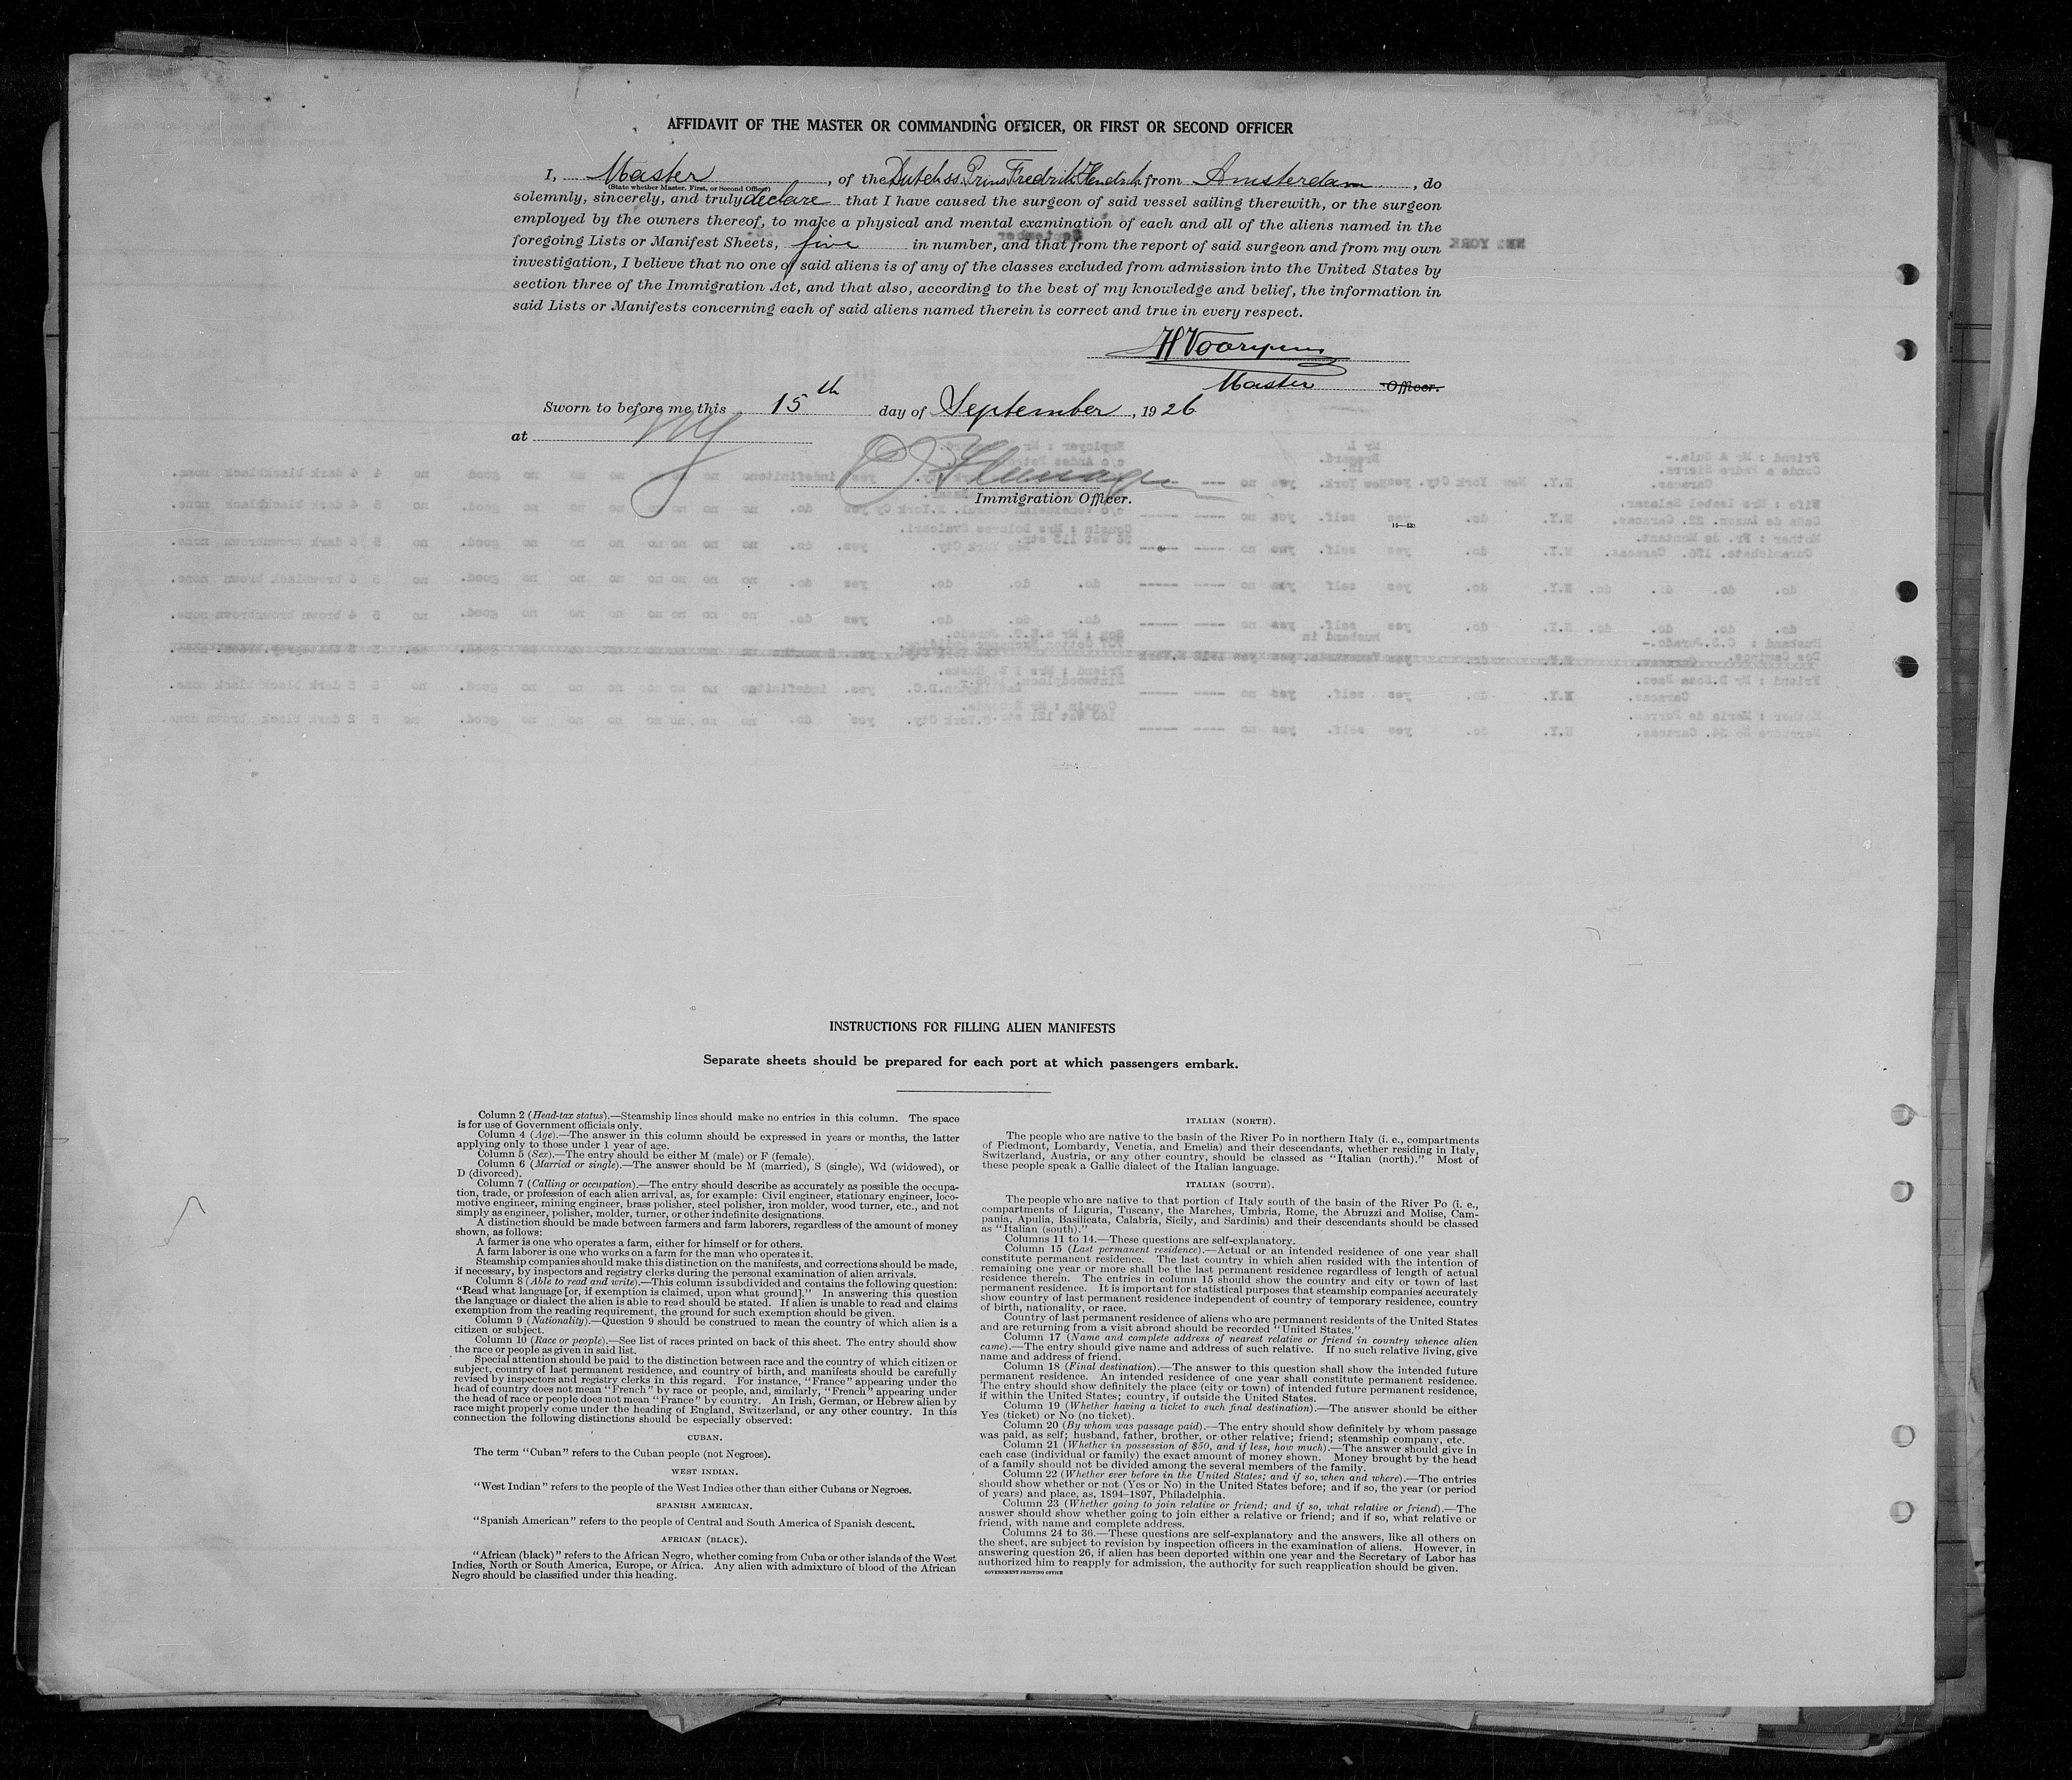 AFFIDAVIT OF THE MASTER OR COMMANDING OFFICER, OR FIRST OR SECOND OFFICER
I, Master, of the Dutch ss. Prins Fredrik Hendrik from Amsterdam, do
(State whether Master, First, or Second Officer)
solemnly, sincerely, and truly declare that I have caused the surgeon of said vessel sailing therewith, or the surgeon
employed by the owners thereof, to make a physical and mental examination of each and all of the aliens named in the
foregoing Lists or Manifest Sheets, five in number, and that from the report of said surgeon and from my own
investigation, I believe that no one of said aliens is of any of the classes excluded from admission into the United States by
section three of the Immigration Act, and that also, according to the best of my knowledge and belief, the information in
said Lists or Manifests concerning each of said aliens named therein is correct and true in every respect.
Master Officer.
Sworn to before me this 15th day of September, 1926
at NY
Immigration Officer.
INSTRUCTIONS FOR FILLING ALIEN MANIFESTS
Separate sheets should be prepared for each port at which passengers embark.
Column 2 (Head-tax status).—Steamship lines should make no entries in this column. The space
is for use of Government officials only.
Column 4 (Age).—The answer in this column should be expressed in years or months, the latter
applying only to those under 1 year of age.
Column 5 (Sex).—The entry should be either M (male) or F (female).
Column 6 (Married or single).—The answer should be M (married), S (single), Wd (widowed), or
D (divorced).
Column 7 (Calling or occupation).—The entry should describe as accurately as possible the occupa-
tion, trade, or profession of each alien arrival, as, for example: Civil engineer, stationary engineer, loco-
motive engineer, mining engineer, brass polisher, steel polisher, iron molder, wood turner, etc., and not
simply as engineer, polisher, molder, turner, or other indefinite designations.
A distinction should be made between farmers and farm laborers, regardless of the amount of money
shown, as follows:
A farmer is one who operates a farm, either for himself or for others.
A farm laborer is one who works on a farm for the man who operates it.
Steamship companies should make this distinction on the manifests, and corrections should be made,
if necessary, by inspectors and registry clerks during the personal examination of alien arrivals.
Column 8 (Able to read and write).—This column is subdivided and contains the following question:
"Read what language [or, if exemption is claimed, upon what ground]." In answering this question
the language or dialect the alien is able to read should be stated. If alien is unable to read and claims
exemption from the reading requirement, the ground for such exemption should be given.
Column 9 (Nationality).—Question 9 should be construed to mean the country of which alien is a
citizen or subject.
Column 10 (Race or people).—See list of races printed on back of this sheet. The entry should show
the race or people as given in said list.
Special attention should be paid to the distinction between race and the country of which citizen or
subject, country of last permanent residence, and country of birth, and manifests should be carefully
revised by inspectors and registry clerks in this regard. For instance, "France" appearing under the
head of country does not mean "French" by race or people, and, similarly, "French" appearing under
the head of race or people does not mean "France" by country. An Irish, German, or Hebrew alien by
race might properly come under the heading of England, Switzerland, or any other country. In this
connection the following distinctions should be especially observed:
CUBAN.
The term "Cuban" refers to the Cuban people (not Negroes).
WEST INDIAN.
"West Indian" refers to the people of the West Indies other than either Cubans or Negroes.
SPANISH AMERICAN.
"Spanish American" refers to the people of Central and South America of Spanish descent.
AFRICAN (BLACK).
"African (black)" refers to the African Negro, whether coming from Cuba or other islands of the West
Indies, North or South America, Europe, or Africa. Any alien with admixture of blood of the African
Negro should be classified under this heading.
ITALIAN (NORTH).
The people who are native to the basin of the River Po in northern Italy (i. e., compartments
of Piedmont, Lombardy, Venetia, and Emelia) and their descendants, whether residing in Italy,
Switzerland, Austria, or any other country, should be classed as "Italian (north)." Most of
these people speak a Gallic dialect of the Italian language.
ITALIAN (SOUTH).
The people who are native to that portion of Italy south of the basin of the River Po (i. e.,
compartments of Liguria, Tuscany, the Marches, Umbria, Rome, the Abruzzi and Molise, Cam-
pania, Apulia, Basilicata, Calabria, Sicily, and Sardinia) and their descendants should be classed
as "Italian (south)."
Columns 11 to 14.—These questions are self-explanatory.
Column 15 (Last permanent residence).—Actual or an intended residence of one year shall
constitute permanent residence. The last country in which alien resided with the intention of
remaining one year or more shall be the last permanent residence regardless of length of actual
residence therein. The entries in column 15 should show the country and city or town of last
permanent residence. It is important for statistical purposes that steamship companies accurately
show country of last permanent residence independent of country of temporary residence, country
of birth, nationality, or race.
Country of last permanent residence of aliens who are permanent residents of the United States
and are returning from a visit abroad should be recorded "United States."
Column 17 (Name and complete address of nearest relative or friend in country whence alien
came).—The entry should give name and address of such relative. If no such relative living, give
name and address of friend.
Column 18 (Final destination).—The answer to this question shall show the intended future
permanent residence. An intended residence of one year shall constitute permanent residence.
The entry should show definitely the place (city or town) of intended future permanent residence,
if within the United States; country, if outside the United States.
Column 19 (Whether having a ticket to such final destination).—The answer should be either
Yes (ticket) or No (no ticket).
Column 20 (By whom was passage paid).—The entry should show definitely by whom passage
was paid, as self; husband, father, brother, or other relative; friend; steamship company, etc.
Column 21 (Whether in possession of $50, and if less, how much).—The answer should give in
each case (individual or family) the exact amount of money shown. Money brought by the head
of a family should not be divided among the several members of the family.
Column 22 (Whether ever before in the United States; and if so, when and where).—The entries
should show whether or not (Yes or No) in the United States before; and if so, the year (or period
of years) and place, as, 1894–1897, Philadelphia.
Column 23 (Whether going to join relative or friend; and if so, what relative or friend).—The
answer should show whether going to join either a relative or friend; and if so, what relative or
friend, with name and complete address.
Columns 24 to 36.—These questions are self-explanatory and the answers, like all others on
the sheet, are subject to revision by inspection officers in the examination of aliens. However, in
answering question 26, if alien has been deported within one year and the Secretary of Labor has
authorized him to reapply for admission, the authority for such reapplication should be given.
GOVERNMENT PRINTING OFFICE